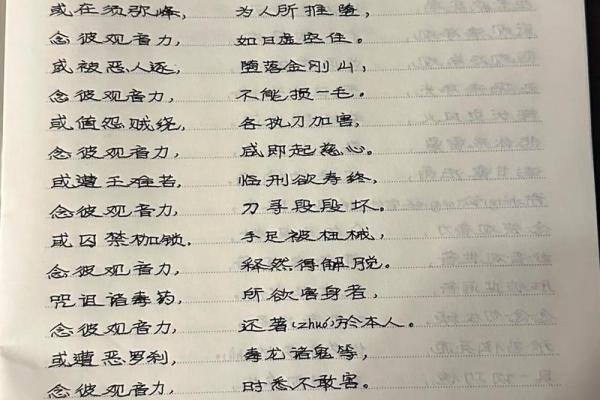 或在须弥峰， 为人所推堕，
念彼观音力， 如日虚空住。
或被恶人逐， 堕落金刚山，
念彼观音力， 不能损一毛。
或值怨贼绕， 各执刀加害，
念彼观音力， 咸即起慈心。
或遭王难苦， 临刑欲寿终，
念彼观音力， 刀手段段坏。
或囚禁枷锁， 手足被杻械，
念彼观音力， 释然得解脱。
咒诅诸毒药， 所欲害身者，
念彼观音力， 还著(zhuó)於本人。
或遭恶罗刹， 毒龙诸鬼等，
念彼观音力， 时悉不敢害。